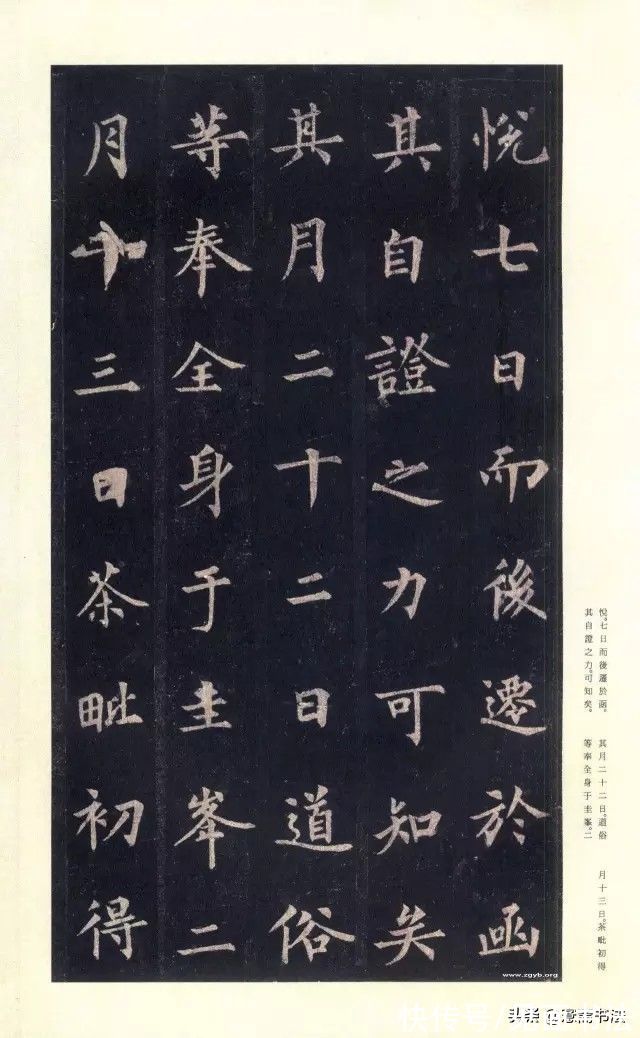 悅七日而後遷於函
其自證之力可知矣
其月二十二日道俗
等奉全身于圭峯二
月十三日茶毗初得
悅。七日而後遷於函。
其自證之力。可知矣。
其月二十二日。道俗
等奉全身于圭峯。二
月十三日。茶毗初得
www.zgyb.org
快传号/
头条@
书法